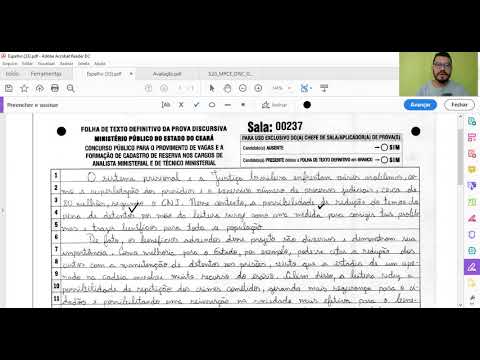 Espelho (33).pdf - Adobe Acrobat Reader DC
Arquivo Editar Visualizar Assinar Janela Ajuda
Início Ferramentas Espelho (33).pdf Avaliação.pdf
Preencher e assinar Avançar Fechar
FOLHA DE TEXTO DEFINITIVO DA PROVA DISCURSIVA
MINISTÉRIO PÚBLICO DO ESTADO DO CEARÁ
CONCURSO PÚBLICO PARA O PROVIMENTO DE VAGAS E A
FORMAÇÃO DE CADASTRO DE RESERVA NOS CARGOS DE
ANALISTA MINISTERIAL E DE TÉCNICO MINISTERIAL
Sala: 00237
PARA USO EXCLUSIVO DO(A) CHEFE DE SALA/APLICADOR(A) DE PROVA(S)
Candidato(a) AUSENTE SIM
Candidato(a) PRESENTE deixou a FOLHA DE TEXTO DEFINITIVO em BRANCO SIM
1 O sistema prisional e a Justiça brasileira enfrentam vários problemas, co-
2 mo a superlotação dos presídios e o excessivo número de processos judiciais, cerca de
3 80 milhões, segundo o CNJ. Nesse contexto, a possibilidade de redução do tempo da
4 pena de detentos por meio da leitura surge como uma medida para corrigir tais proble-
5 mas e trazer benefícios para toda a população.
6 De fato, os benefícios advindos desse projeto são diversos e demonstram sua
7 importância. Como melhoria para o Estado, por exemplo, pode-se citar a redução dos
8 custos com a manutenção de detentos por prisão, visto que a estadia de um ape-
9 nado na cadeia envolve muito recurso do erário. Além disso, a leitura reduz a
10 possibilidade de repetição dos crimes cometidos, gerando mais segurança para o ci-
11 dadão e possibilitando uma reinserção na sociedade mais efetiva para o bene-